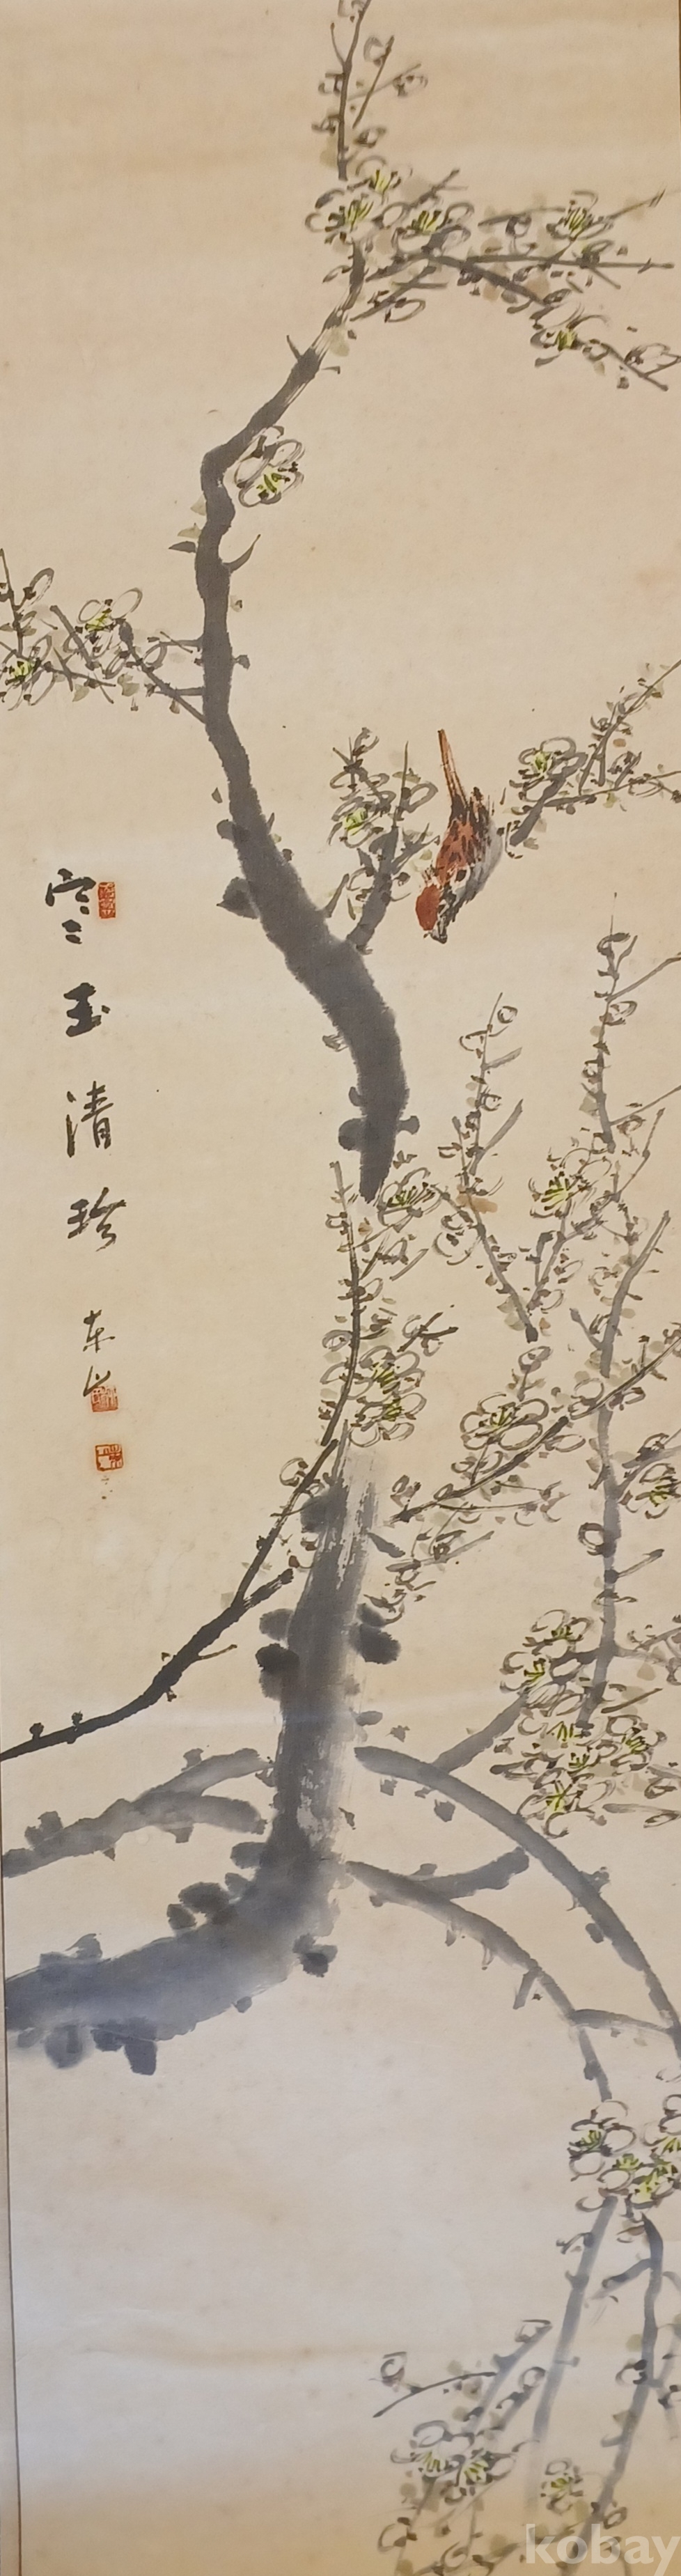 寒玉清珍
东山
kobay